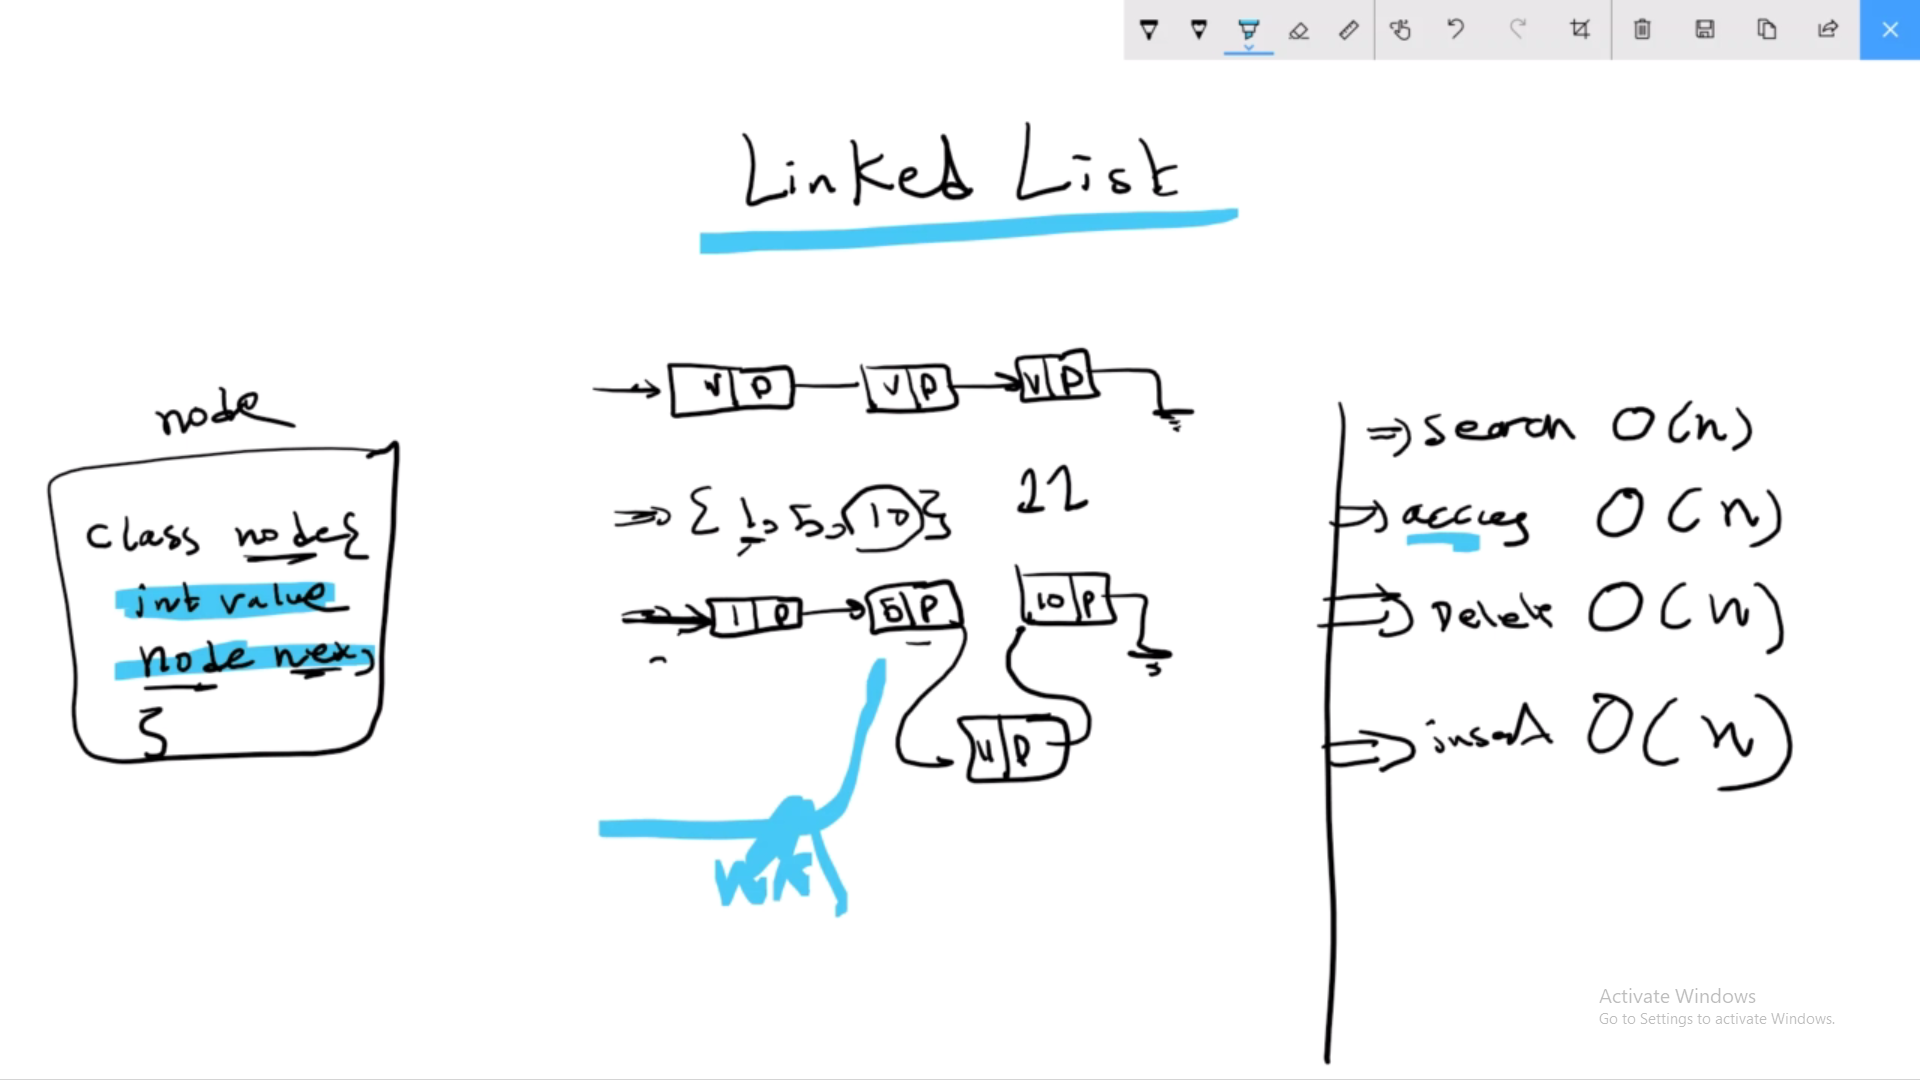 Linked List
node
class node{
int value
node next;
}
V P V P V P
=> { 1, 5, 10 } 22
1 P 5 P 10 P
V P
=> Search O(n)
=> access O(n)
=> Delete O(n)
=> insert O(n)
Activate Windows
Go to Settings to activate Windows.